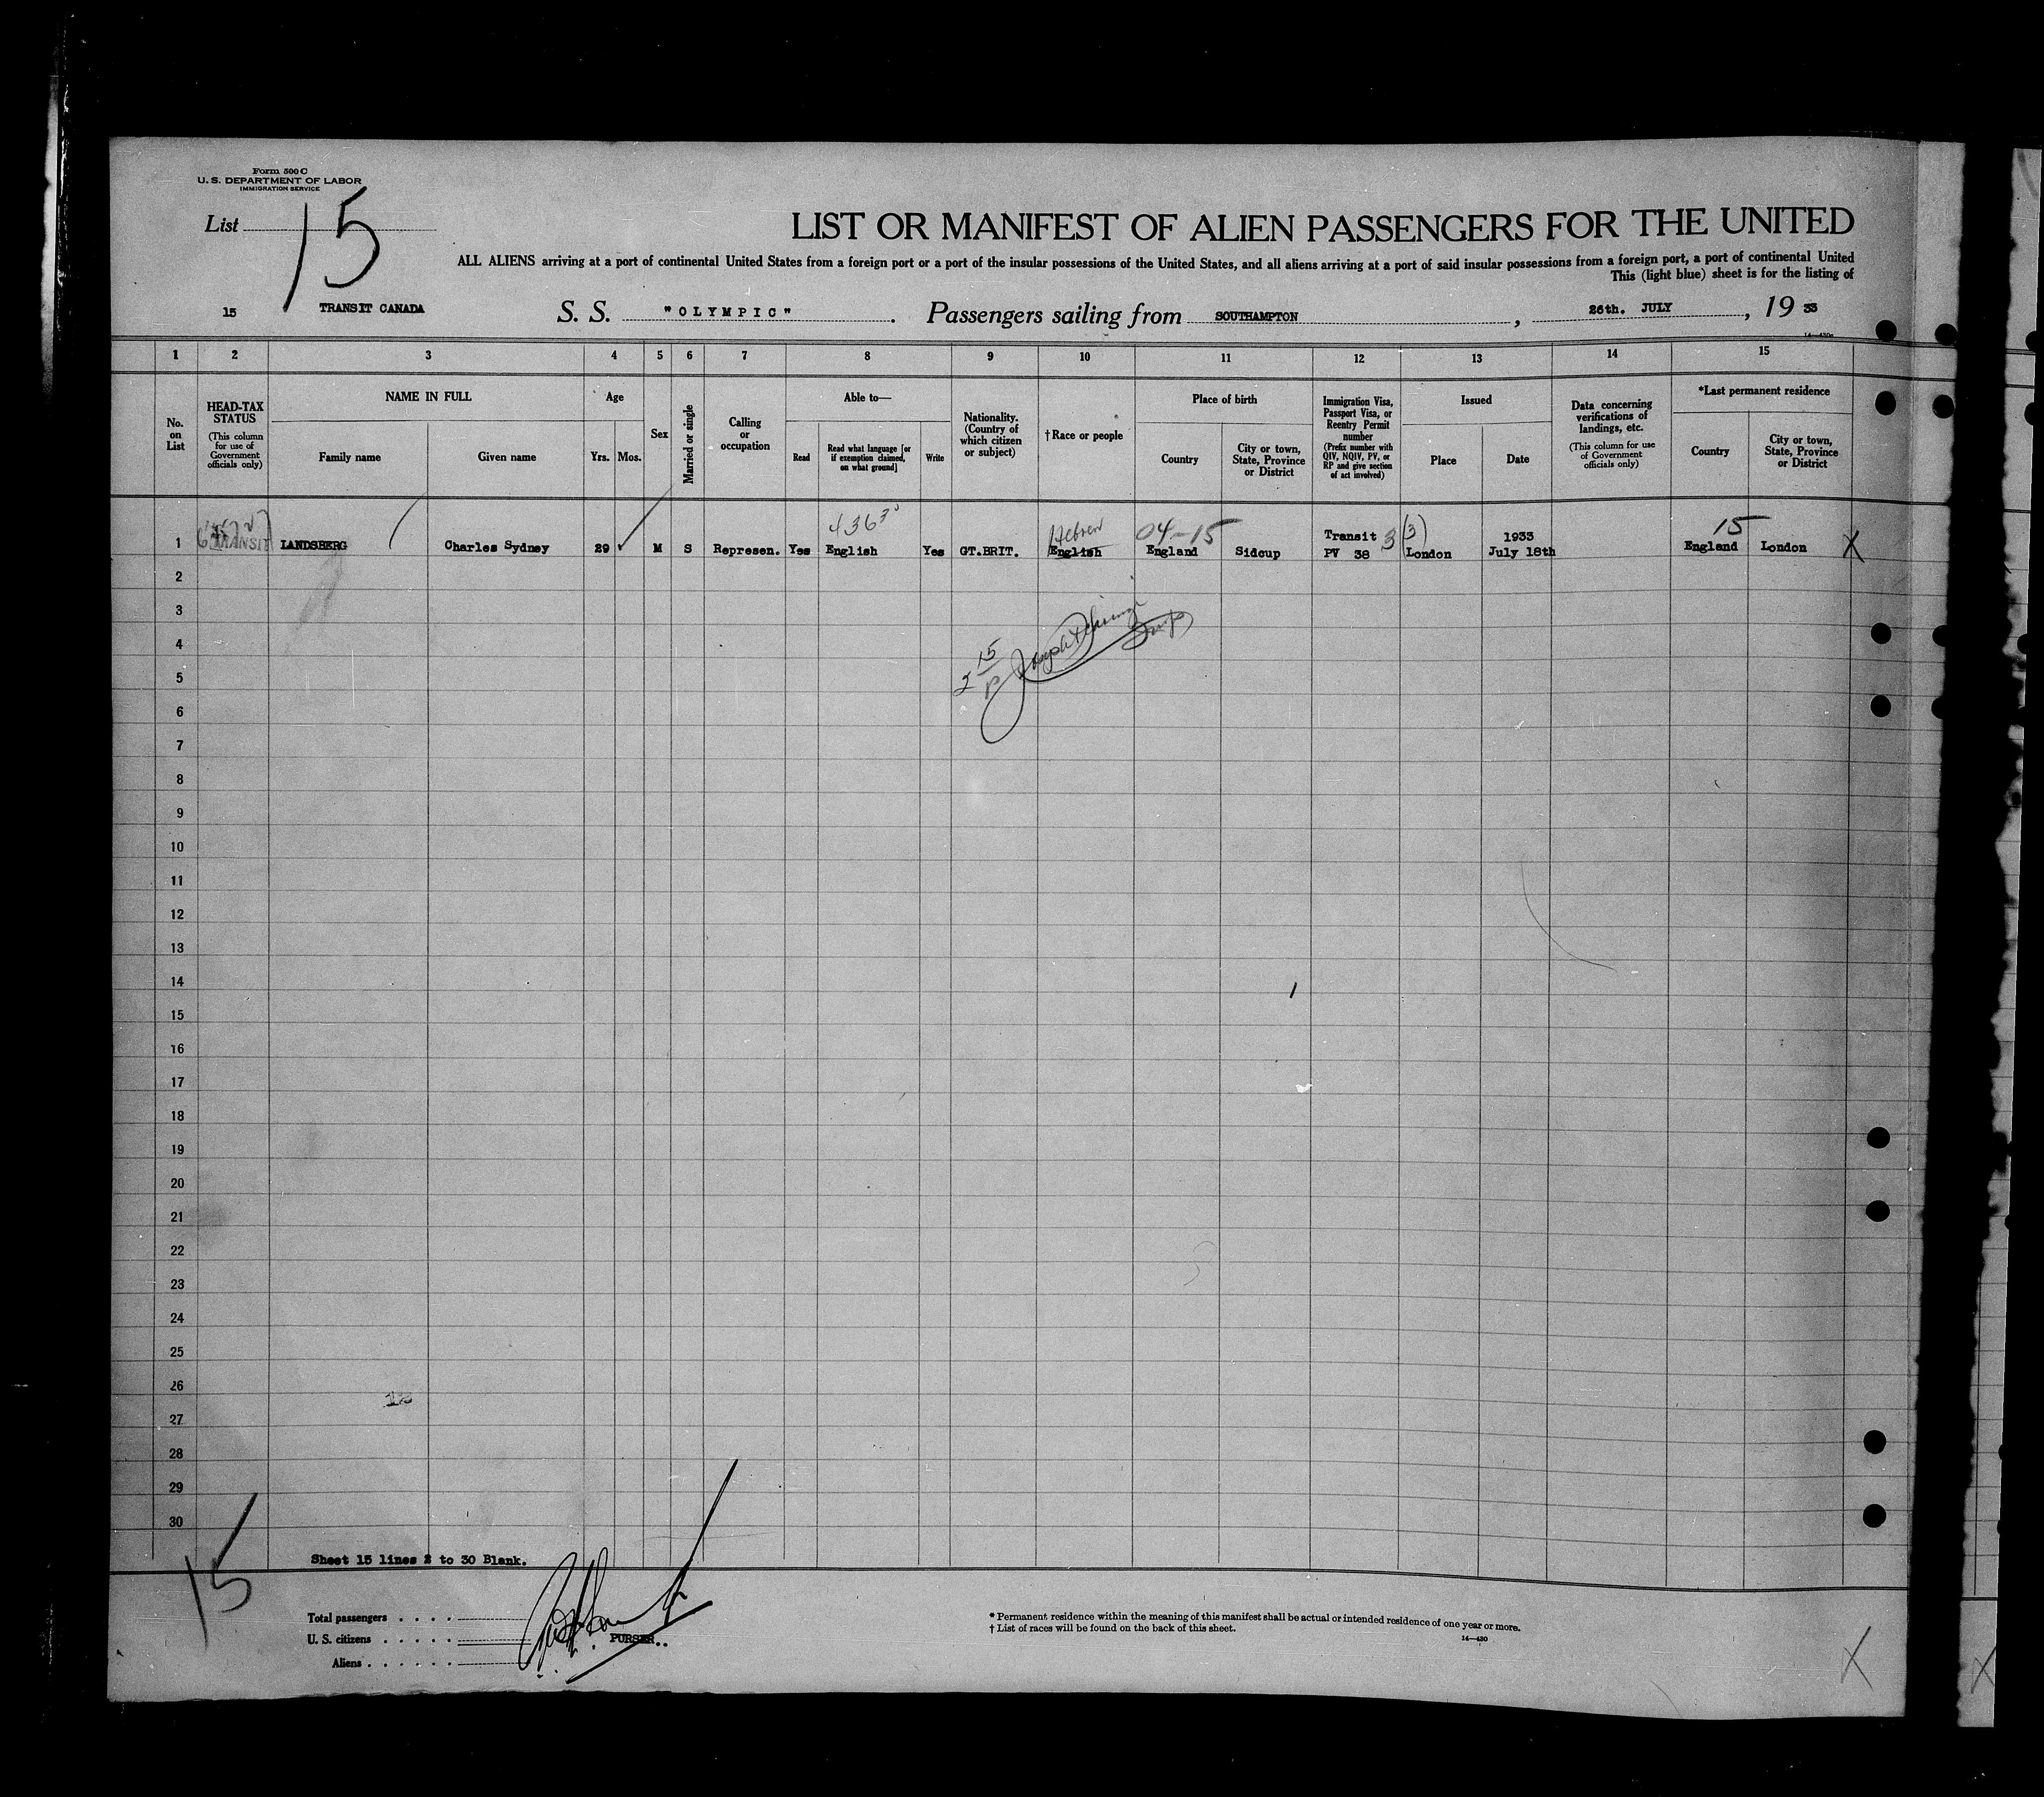 Form 500 C
U. S. DEPARTMENT OF LABOR
IMMIGRATION SERVICE
List 15
LIST OR MANIFEST OF ALIEN PASSENGERS FOR THE UNITED
ALL ALIENS arriving at a port of continental United States from a foreign port or a port of the insular possessions of the United States, and all aliens arriving at a port of said insular possessions from a foreign port, a port of continental United
This (light blue) sheet is for the listing of
15 TRANSIT CANADA S. S. "OLYMPIC". Passengers sailing from SOUTHAMPTON, 26th. JULY, 19 33
1 2 3 4 5 6 7 8 9 10 11 12 13 14 15
No. on List
HEAD-TAX STATUS (This column for use of Government officials only)
NAME IN FULL
Family name Given name
Age
Yrs. Mos.
Sex
Married or single
Calling or occupation
Able to—
Read
Read what language [or if exemption claimed, on what ground]
Write
Nationality. (Country of which citizen or subject)
†Race or people
Place of birth
Country
City or town, State, Province or District
Immigration Visa, Passport Visa, or Reentry Permit number (Prefix number with QIV, NQIV, PV, or RP and give section of act involved)
Issued
Place Date
Data concerning verifications of landings, etc. (This column for use of Government officials only)
*Last permanent residence
Country
City or town, State, Province or District
4363 Hebrew 04-15 Transit 3 (3) 1933 15
1 TRANSIT LANDSBERG Charles Sydney 29 M S Represen. Yes English Yes GT.BRIT. English England Sidcup PV 38 London July 18th England London X
2
3
4
15
5
6
7
8
9
10
11
12
13
14
15
16
17
18
19
20
21
22
23
24
25
26
27
28
29
30
Sheet 15 lines 2 to 30 Blank.
15
Total passengers . . . .
U. S. citizens . . . . .
Aliens . . . . . .
PURSER..
* Permanent residence within the meaning of this manifest shall be actual or intended residence of one year or more.
† List of races will be found on the back of this sheet.
14—430
X
X